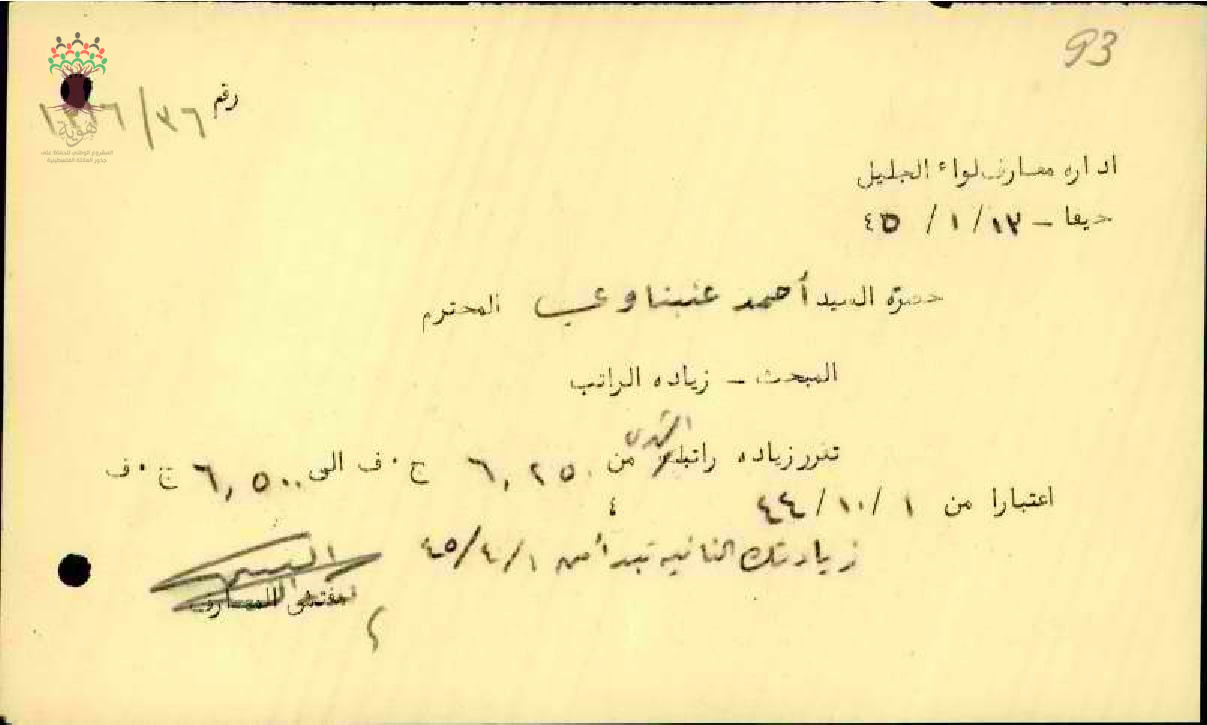 93
رقم ٣٦/
هوية
المشروع الوطني للحفاظ على
جذور العائلة الفلسطينية
اداره معارف لواء الجليل
حيفا - ١٣/ ١ / ٤٥
حضرة السيد أحمد عنبتاوي المحترم
المبحث - زياده الراتب
الشهري
تقرر زياده راتبك من ٦,٢٥٠ ج ٠ ف الى ٦,٥٠٠ ج ٠ ف
اعتبارا من ١ /١٠/ ٤٤
زيادتك الثانيه تبدأ من ١/ ٤/ ٤٥
مفتش المعارف